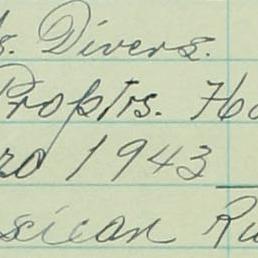 s. Divers.
Proptrs. Ho
ro 1943
sician Ru